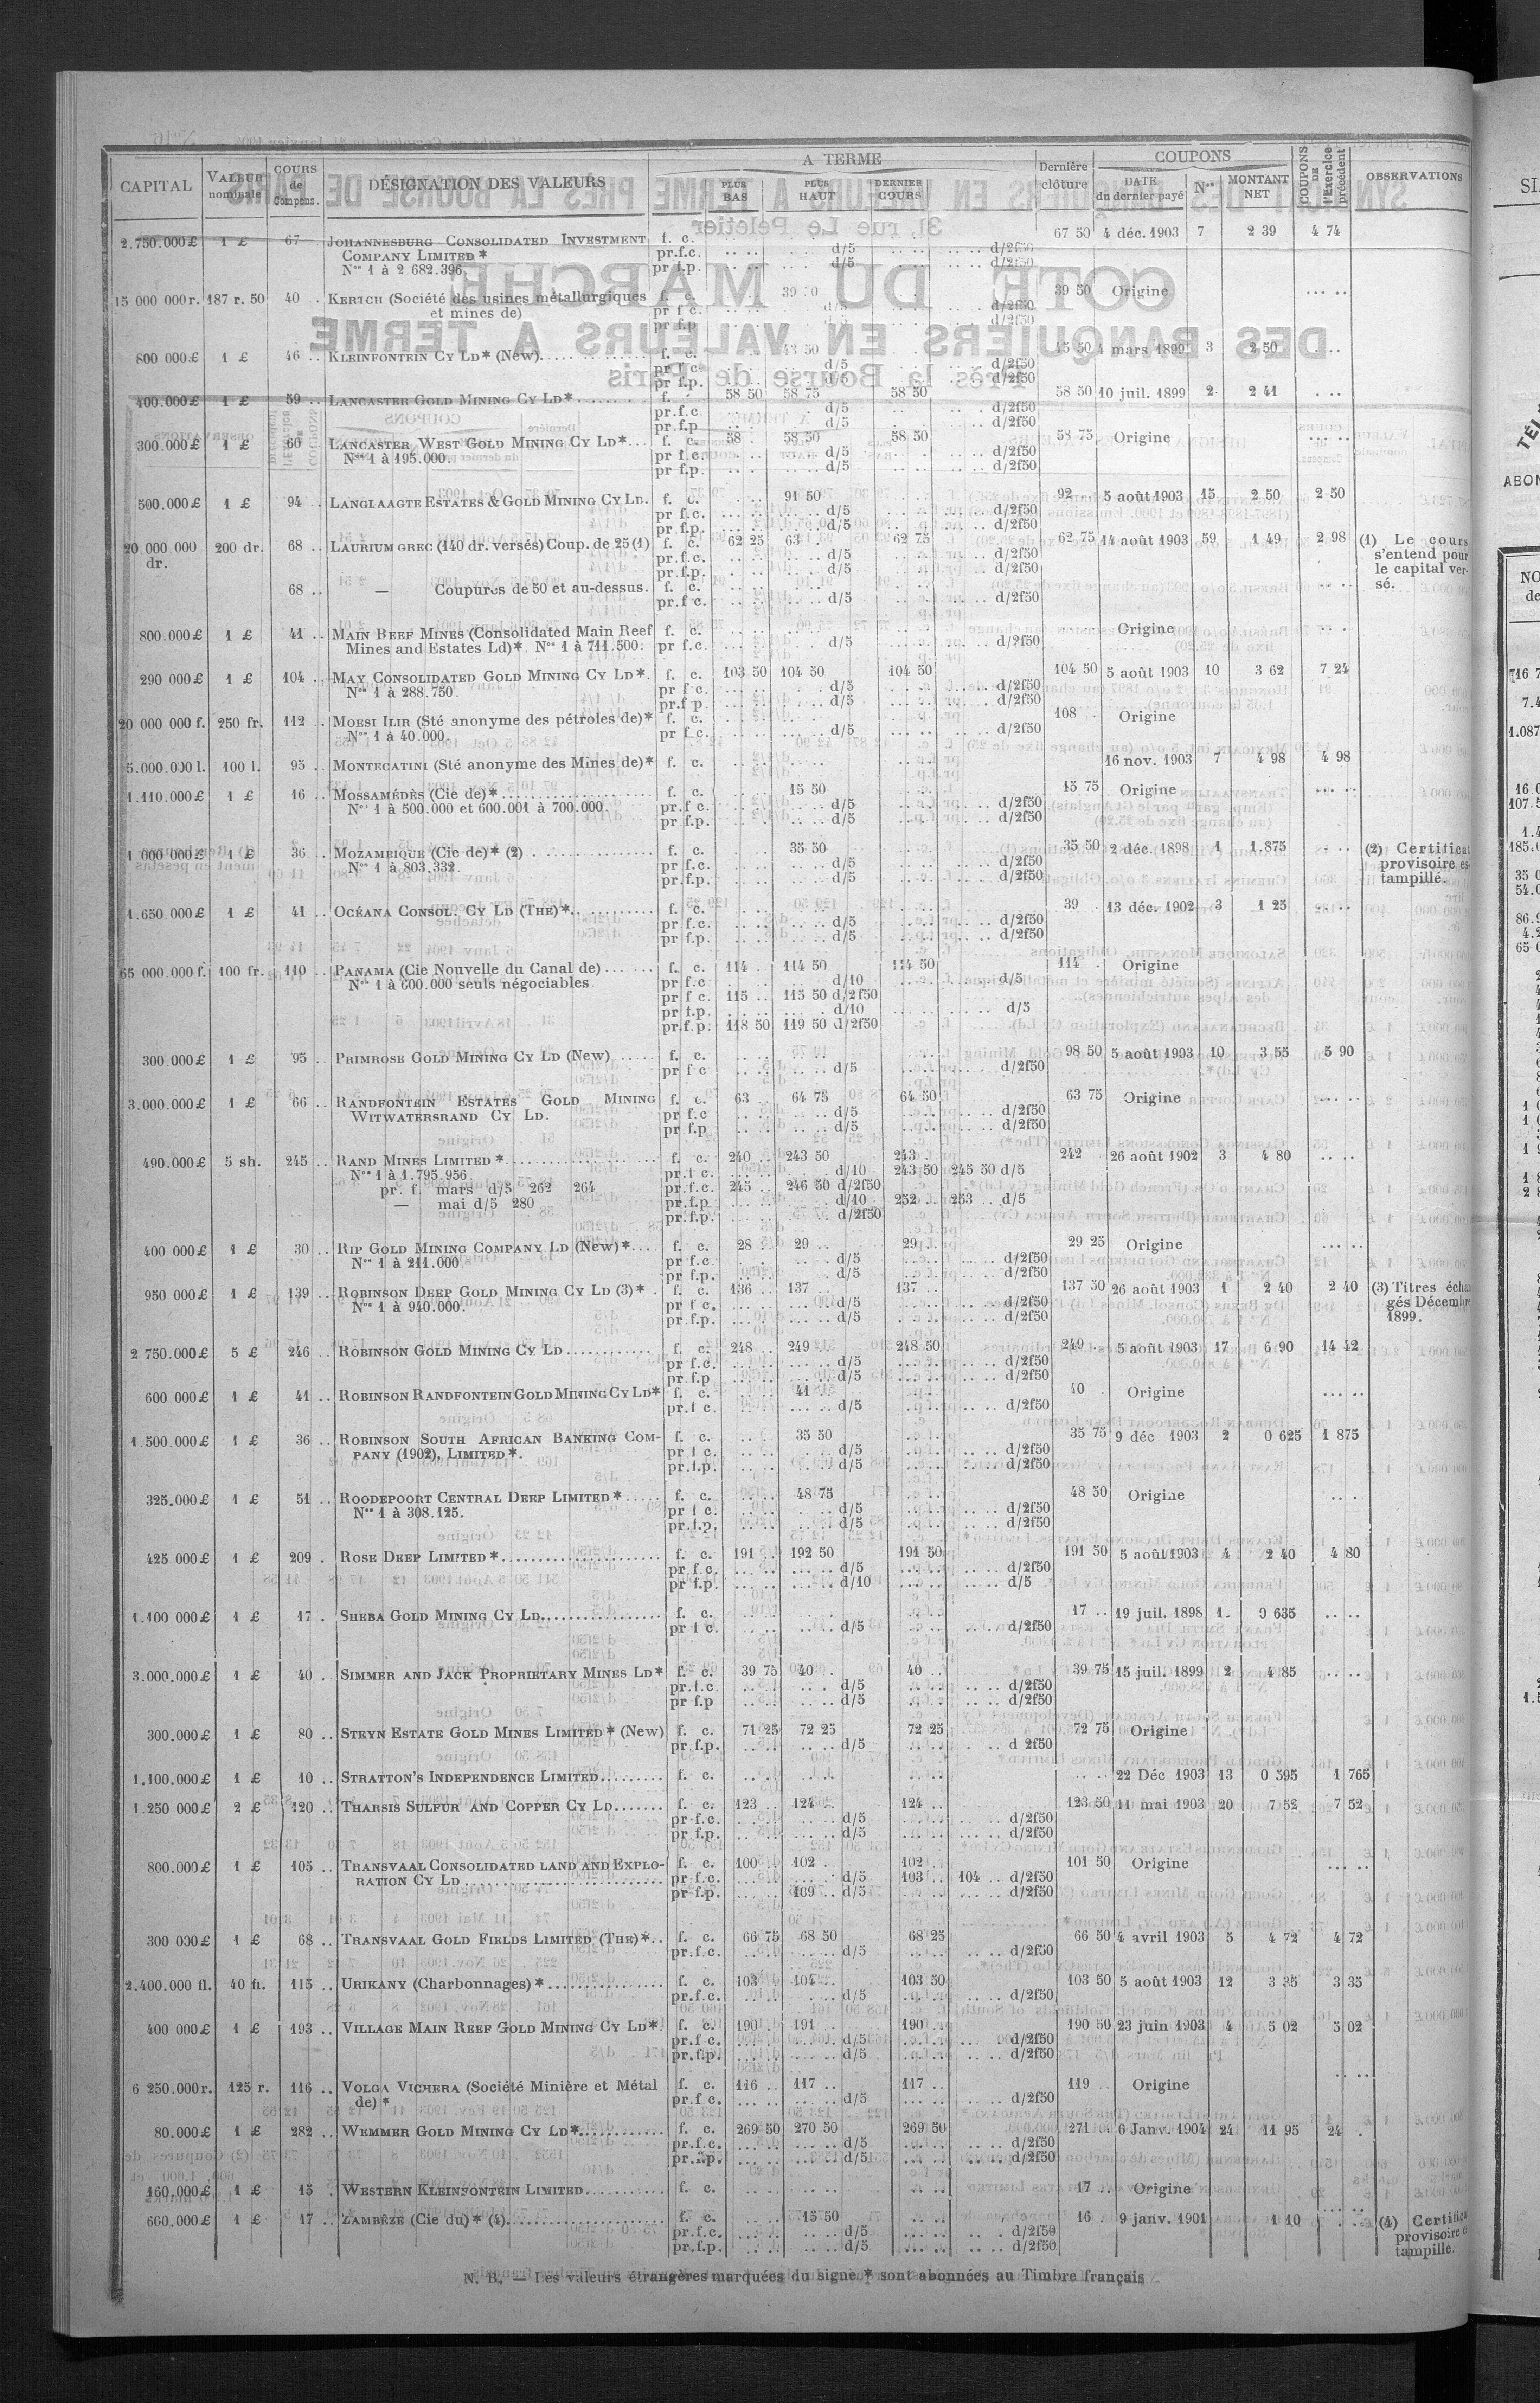 CAPITAL | VALEUR nominale | COURS de Compens. | DÉSIGNATION DES VALEURS | A TERME | PLUS BAS | PLUS HAUT | DERNIER COURS | Dernière clôture | COUPONS | DATE du dernier payé | Nos | MONTANT NET | COUPONS DE l'Exercice précédent | OBSERVATIONS
2.750.000 £ 1 £ 67 JOHANNESBURG CONSOLIDATED INVESTMENT f. c. 67 50 4 déc. 1903 7 2 39 4 74
COMPANY LIMITED * pr.f.c. d/5 d/2f50
Nos 1 à 2 682.396. pr f.p. d/5 d/2f50
15 000 000 r. 187 r. 50 40 .. KERTCH (Société des usines métallurgiques f. c. 39 50 39 50 Origine
et mines de) pr f c. d/5 d/2f50
pr f.p d/2f50
800 000 £ 1 £ 46 .. KLEINFONTEIN CY LD* (New) f. c. 43 50 45 50 4 mars 1899 3 2 50
pr f c. d/5 d/2f50
pr f.p. d/5 d/2f50
400.000 £ 1 £ 59 .. LANCASTER GOLD MINING CY LD* f. 58 50 58 75 58 50 58 50 10 juil. 1899 2 2 41
pr.f.c. d/5 d/2f50
pr.f.p d/5 d/2f50
300.000 £ 1 £ 60 LANCASTER WEST GOLD MINING CY LD* f. c. 58 58 50 58 50 58 75 Origine
Nos 1 à 195.000. pr f.c. d/5 d/2f50
pr f.p. d/5 d/2f50
500.000 £ 1 £ 94 .. LANGLAAGTE ESTATES & GOLD MINING CY LD. f. c. 91 50 92 5 août 1903 15 2 50 2 50
pr f.c. d/5 d/2f50
pr f.p. d/5 d/2f50
20 000 000 200 dr. 68 .. LAURIUM GREC (140 dr. versés) Coup. de 25 (1) f. c. 62 25 63 62 75 62 75 14 août 1903 59 1 49 2 98 (1) Le cours
dr. pr.f.c. d/5 d/2f50 s'entend pour
pr f.p. d/5 d/2f50 le capital ver-
68 .. — Coupures de 50 et au-dessus. f. c. sé.
pr.f c. d/5 d/2f50
800.000 £ 1 £ 41 .. MAIN REEF MINES (Consolidated Main Reef f. c. Origine
Mines and Estates Ld)*. Nos 1 à 711.500. pr f.c. d/5 d/2f50
290 000 £ 1 £ 104 .. MAY CONSOLIDATED GOLD MINING CY LD*. f. c. 103 50 104 50 104 50 104 50 5 août 1903 10 3 62 7 24
Nos 1 à 288.750. pr f c. d/5 d/2f50
pr.f p. d/5 d/2f50
20 000 000 f. 250 fr. 112 .. MOESI ILIR (Sté anonyme des pétroles de)* f. c. 108 Origine
Nos 1 à 40.000. pr f c. d/5 d/2f50
5.000.000 l. 100 l. 95 .. MONTECATINI (Sté anonyme des Mines de)* f. c. 16 nov. 1903 7 4 98 4 98
1.110.000 £ 1 £ 16 .. MOSSAMÉDÈS (Cie de)* f. c. 15 50 15 75 Origine
Nos 1 à 500.000 et 600.001 à 700.000. pr.f c. d/5 d/2f50
pr f.p. d/5 d/2f50
1 000 000 £ 1 £ 36 . MOZAMBIQUE (Cie de)* (2) f. c. 35 50 35 50 2 déc. 1898 1 1.875 (2) Certificat
Nos 1 à 803.332. pr f.c. d/5 d/2f50 provisoire es-
pr.f.p. d/5 d/2f50 tampillé.
1.650 000 £ 1 £ 41 .. OCÉANA CONSOL. CY LD (THE)* f. c. 39 13 déc. 1902 3 1 25
pr f.c. d/5 d/2f50
pr f.p. d/5 d/2f50
65 000.000 f. 100 fr. 110 .. PANAMA (Cie Nouvelle du Canal de) f. c. 114 114 50 114 50 114 Origine
Nos 1 à 600.000 seuls négociables. pr f.c d/10 d/5
pr f c. 115 .. 115 50 d/2f50
pr f.p. d/10 d/5
pr.f.p. 118 50 119 50 d/2f50
300.000 £ 1 £ 95 .. PRIMROSE GOLD MINING CY LD (New) f. c. 98 50 5 août 1903 10 3 55 5 90
pr f c d/5 d/2f50
3.000.000 £ 1 £ 66 .. RANDFONTEIN ESTATES GOLD MINING f. c. 63 64 75 64 50 63 75 Origine
WITWATERSRAND CY LD. pr f.c d/5 d/2f50
pr f.p d/5 d/2f50
490.000 £ 5 sh. 245 .. RAND MINES LIMITED * f. c. 240 243 50 243 242 26 août 1902 3 4 80
Nos 1 à 1.795.956. pr.f c. d/10 243 50 245 50 d/5
pr. f. mars d/5 262 264 pr.f.c. 245 .. 246 50 d/2f50
— mai d/5 280 pr.f.p d/10 252 253 d/5
pr.f.p. d/2f50
400 000 £ 1 £ 30 .. RIP GOLD MINING COMPANY LD (New)* f. c. 28 29 29 29 25 Origine
Nos 1 à 211.000 pr f.c. d/5 d/2f50
pr f.p. d/5 d/2f50
950 000 £ 1 £ 139 .. ROBINSON DEEP GOLD MINING CY LD (3)* f. c. 136 137 137 137 50 26 août 1903 1 2 40 2 40 (3) Titres échan
Nos 1 à 940.000. pr f c. d/5 d/2f50 gés Décembre
pr.f.p. d/5 d/2f50 1899.
2 750.000 £ 5 £ 246 .. ROBINSON GOLD MINING CY LD f. c. 248 249 248 50 249 5 août 1903 17 6 90 14 42
pr f.c. d/5 d/2f50
pr.f.p d/5 d/2f50
600 000 £ 1 £ 41 .. ROBINSON RANDFONTEIN GOLD MINING CY LD* f. c. 41 40 Origine
pr.f c. d/5 d/2f50
1.500.000 £ 1 £ 36 .. ROBINSON SOUTH AFRICAN BANKING COM- f. c. 35 50 35 75 9 déc 1903 2 0 625 1 875
PANY (1902), LIMITED*. pr f c. d/5 d/2f50
pr.f.p. d/5 d/2f50
325.000 £ 1 £ 51 .. ROODEPOORT CENTRAL DEEP LIMITED* f. c. 48 75 48 50 Origine
Nos 1 à 308.125. pr f c. d/5 d/2f50
pr.f.p. d/5 d/2f50
425.000 £ 1 £ 209 . ROSE DEEP LIMITED* f. c. 191 192 50 191 50 191 50 5 août 1903 4 2 40 4 80
pr f.c. d/5 d/2f50
pr f.p. d/10 d/5
1.100 000 £ 1 £ 17 . SHEBA GOLD MINING CY LD. f. c. 17 .. 19 juil. 1898 1 0 635
pr f c. d/5 d/2f50
3.000.000 £ 1 £ 40 .. SIMMER AND JACK PROPRIETARY MINES LD* f. c. 39 75 40 40 39 75 15 juil. 1899 2 4 85
pr.f.c. d/5 d/2f50
pr f.p d/5 d/2f50
300.000 £ 1 £ 80 .. STEYN ESTATE GOLD MINES LIMITED* (New) f. c. 71 25 72 25 72 25 72 75 Origine
pr.f.p. d/5 d 2f50
1.100.000 £ 1 £ 10 .. STRATTON'S INDEPENDENCE LIMITED f. c. 22 Déc 1903 13 0 395 1 765
1.250 000 £ 2 £ 120 .. THARSIS SULFUR AND COPPER CY LD f. c. 123 124 124 123 50 11 mai 1903 20 7 52 7 52
pr f.c. d/5 d/2f50
pr f.p. d/5 d/2f50
800.000 £ 1 £ 105 .. TRANSVAAL CONSOLIDATED LAND AND EXPLO- f. c. 100 102 102 101 50 Origine
RATION CY LD pr f.c. d/5 103 104 d/2f50
pr f.p. 109 d/5 d/2f50
300 000 £ 1 £ 68 .. TRANSVAAL GOLD FIELDS LIMITED (THE)* f. c. 66 75 68 50 68 25 66 50 4 avril 1903 5 4 72 4 72
pr.f.c. d/5 d/2f50
2.400.000 fl. 40 fl. 115 .. URIKANY (Charbonnages)* f. c. 103 104 103 50 103 50 5 août 1903 12 3 35 3 35
pr.f.c. d/5 d/2f50
400 000 £ 1 £ 193 .. VILLAGE MAIN REEF GOLD MINING CY LD* f. c. 190 191 190 190 50 23 juin 1903 4 5 02 5 02
pr.f c. d/5 d/2f50
pr.f.p. d/5 d/2f50
6 250.000 r. 125 r. 116 .. VOLGA VICHERA (Société Minière et Métal f. c. 116 .. 117 .. 117 .. 119 Origine
de) * pr.f c. d/5 d/2f50
80.000 £ 1 £ 282 .. WEMMER GOLD MINING CY LD* f. c. 269 50 270 50 269 50 271 6 Janv. 1904 24 11 95 24 .
pr.f.c. d/5 d/2f50
pr.f.p. d/5 d/2f50
160.000 £ 1 £ 15 . WESTERN KLEINFONTEIN LIMITED f. c. 17 .. Origine
600.000 £ 1 £ 17 .. ZAMBÈZE (Cie du)* (4) f. c. 15 50 16 . 9 janv. 1901 1 10 (4) Certifica
pr.f.c. d/5 d/2f50 provisoire
pr.f.p. d/5 d/2f50 tampille.
N. B. — Les valeurs étrangères marquées du signe * sont abonnées au Timbre français